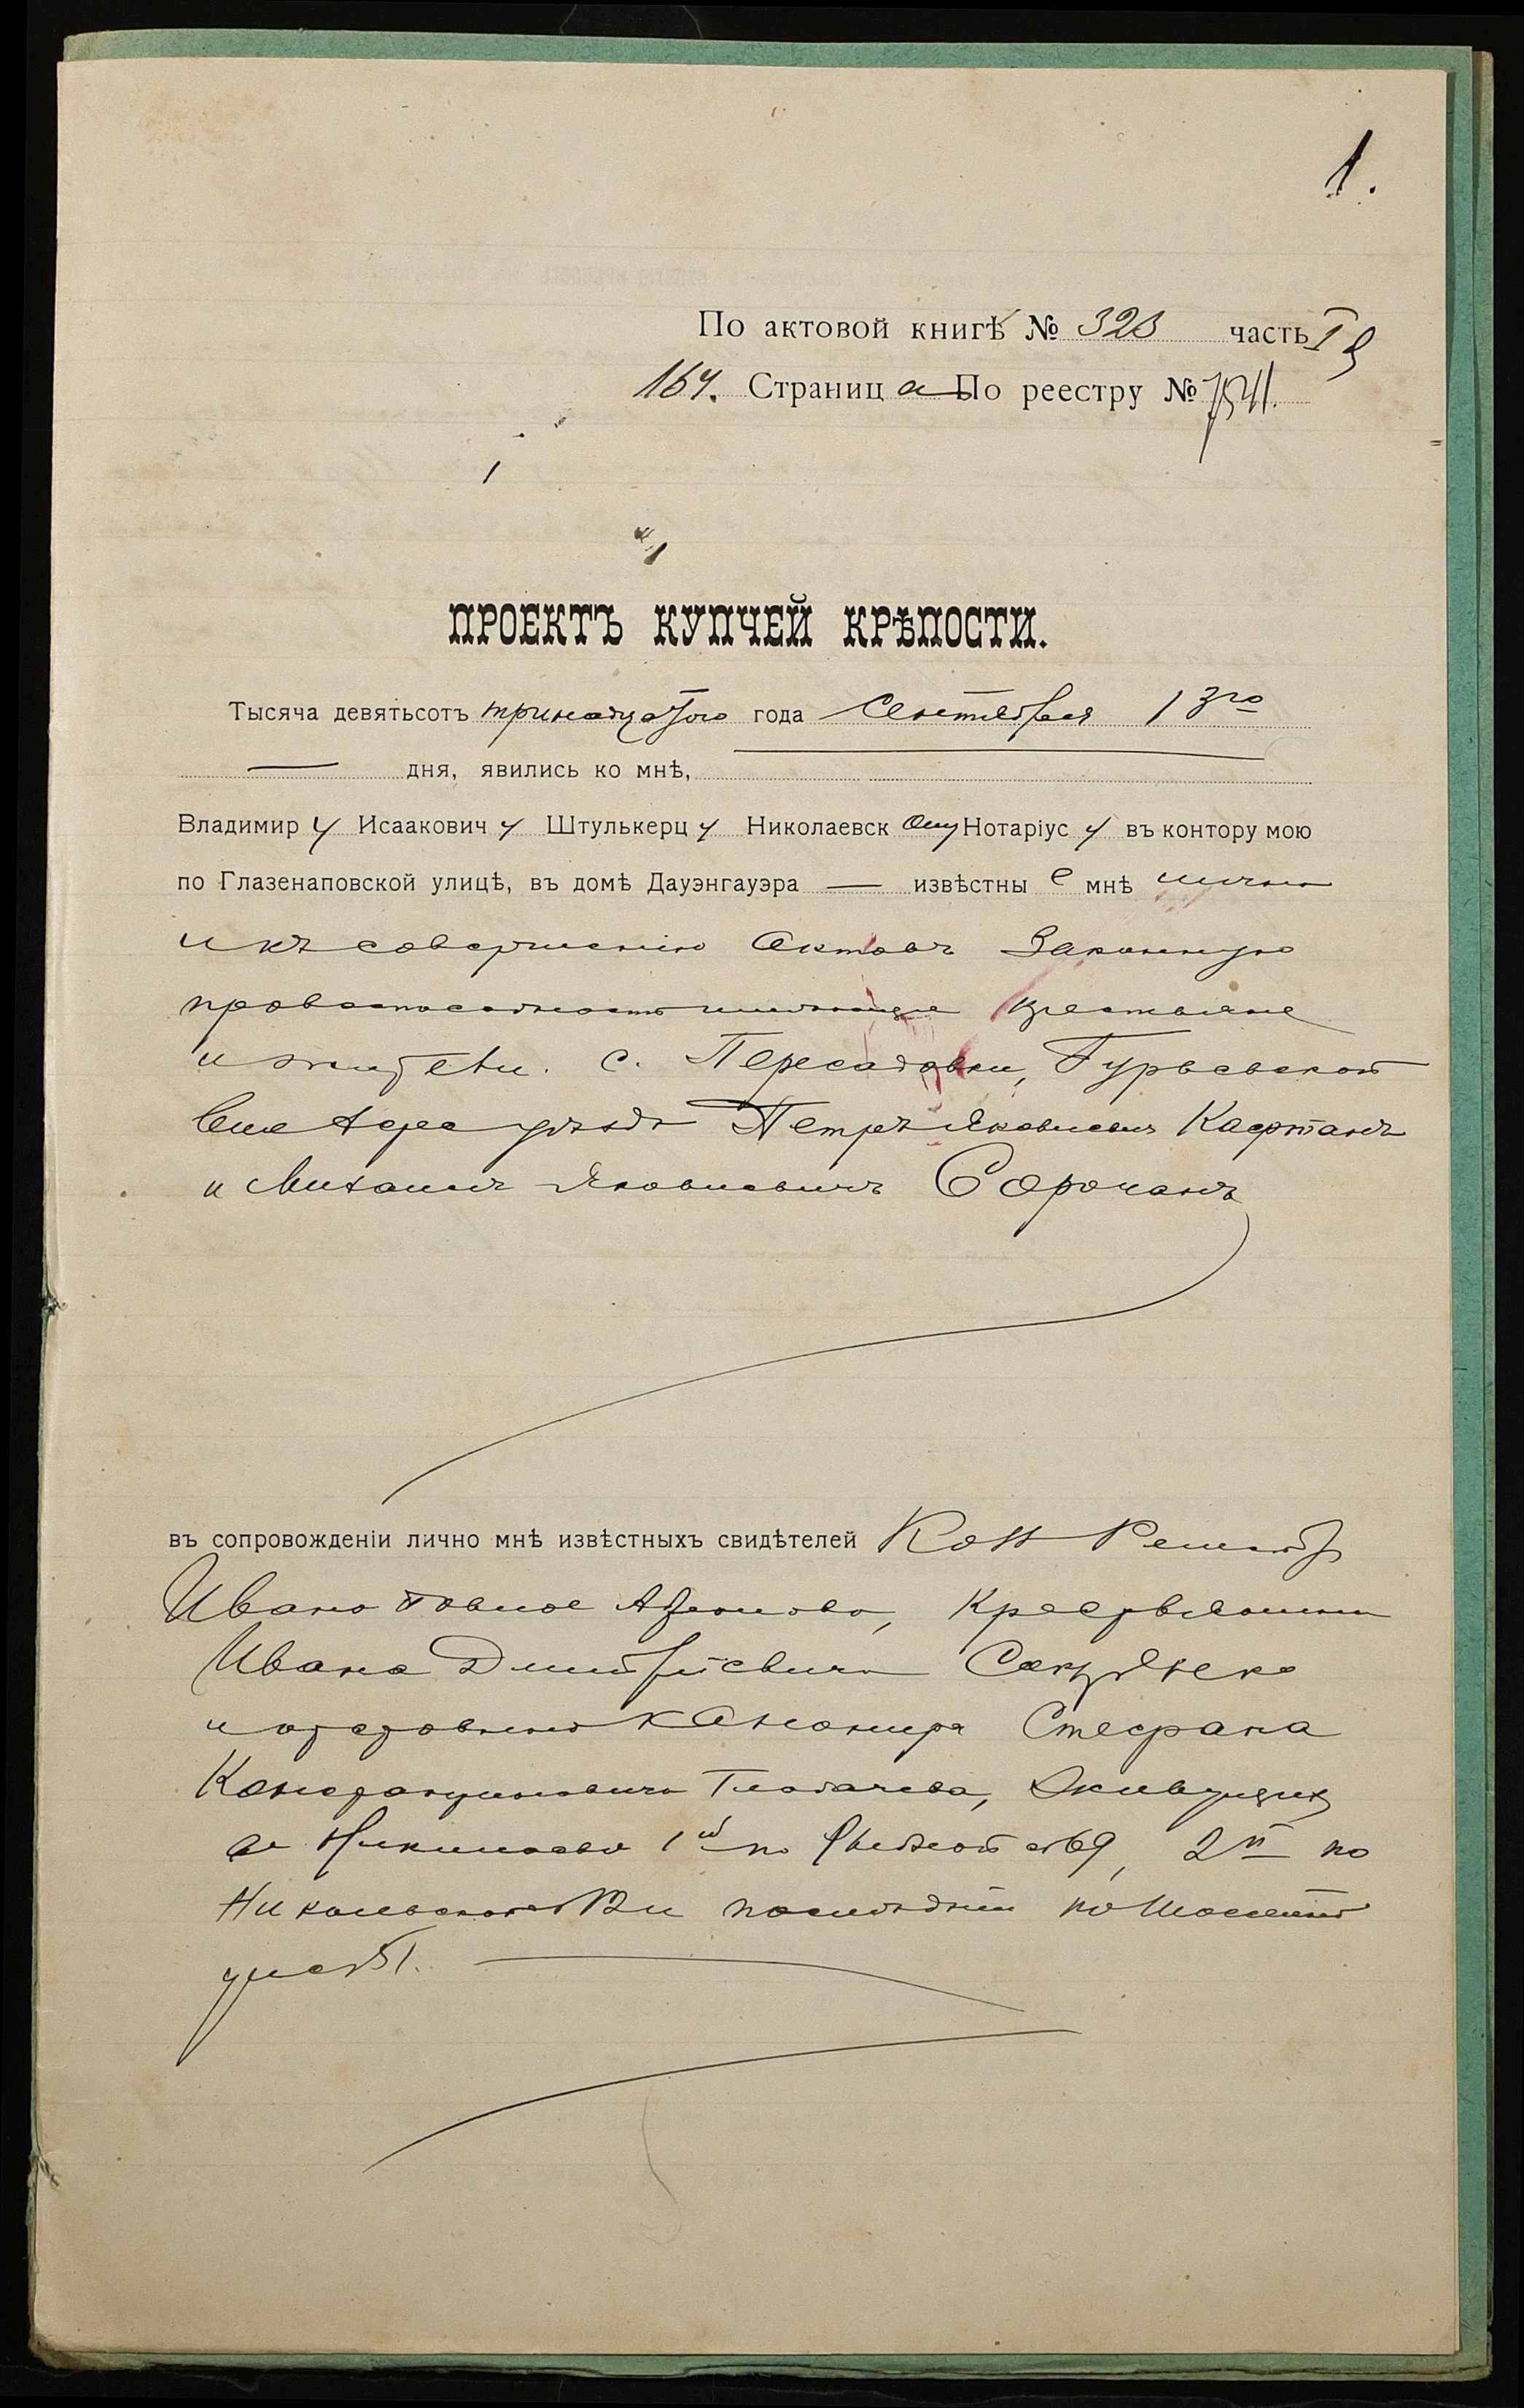 1.
По актовой книгѣ № 323 часть I
164. Страница По реестру № 7541.
ПРОЕКТЪ КУПЧЕЙ КРѢПОСТИ.
Тысяча девятьсотъ тринадцатого года Сентября 13го
дня, явились ко мнѣ,
Владимиру Исааковичу Штулькерцу Николаевскому Нотаріусу въ контору мою
по Глазенаповской улицѣ, въ домѣ Дауэнгауэра — извѣстные мнѣ лично
и къ совершенію актовъ законную
правоспособность имѣющіе крестьяне
и жители с. Пересадовки, Гурьевской
уѣзда Петръ Яковлевичъ Кафтанъ
и Михаилъ Яковлевичъ Сорочанъ
въ сопровожденіи лично мнѣ извѣстныхъ свидѣтелей Кол Регистр
Ивана Крестьянина
Ивана Дмитріевича
и отставного канонира Стефана
Константиновича Глодачева, живущихъ
въ Николаевѣ 1й по 2й по
Никольской и послѣдній по